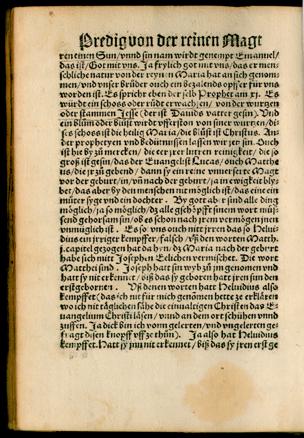 Predig von der reinen Magt
ren einen Sun/ vnnd sin nam wirdt genempt Emanuel/
das ist/ Got mit vns. Ja frylich got mit vns/ das er men-
schliche natur von der reynen Maria hat an sich genom-
men/ vnd vnser brůder ouch ein bezalends opffer für vns
worden ist. Es spricht eben der selb Prophet am xj. Es
würdt ein schoss oder růdt erwachsen/ von der wurgen
oder stammen Jesse (der ist Dauids vatter gesin) Vnd
ein blům oder blůst wirdt vfferston von siner wurtzen/ di-
ses schoss ist die heilig Maria/ die blůst ist Christus. An-
der prophetyen vnd bedütnussen lassen wir jetz sin. Ouch
ist hie by zů mercken/ die wer jrer lutren reinigkeit/ die so
groß ist gesin/ das der Euangelist Lucas/ ouch Matthe-
us/ die jr zů gehend/ dann sy ein reine vnuerserte Magt
vor der geburt/ in vnd nach der geburt/ ja in ewigkeit blybt
das aber by den menschen nit möglich ist/ das eine ein
můter syge vnd ein dochter. By gott aber sind alle ding
möglich/ ja so möglich/ dz alle gschöpfft sinem wort müs-
send gehorsam sin/ ob es schon nach jrem vermögen
vnmüglich ist. Es so vns ouch nitt jrren das so Helui-
dius ein jrriger kempffer/ falsch vß den worten Matth.
j. capitel gezogen hat/ da/ dz Maria nach der geburt
habe sich mitt Joseph Eelichen vermischet. Die wort
Matthei sind. Joseph hatt sin wyb zů jm genommen vnd
hatt sy nit erkennet/ biß das sy geboren hatt jren sun den
erstgebornen. Vß denen worten hatt Heluidius also
kempffet
wo ich nit täglichen sähe die einualtigen Christen das E-
uangelium Christi läsen/ vnnd an dem ort schühen vnnd
zuffen. Ja dick bin ich vom gelerten/ vnd vngelerten ge-
fragt disen knopff vff ze thůn). Ja also hat Heluidius
kempffet. Hatt sy jnn nit erkennet/ biß das sy jren erst ge